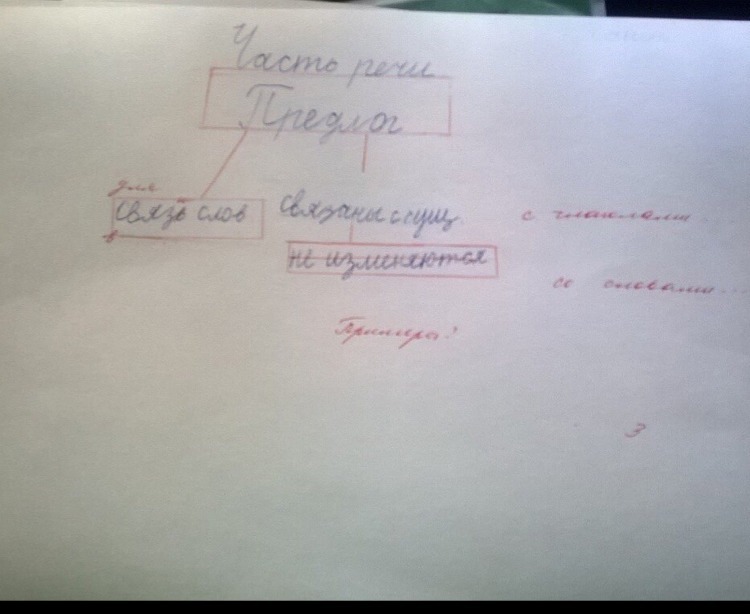 Часть речи
Предлог
для
связь слов
в
связаны с сущ.
с глаголами...
не изменяются
со словами...
Примеры?
3